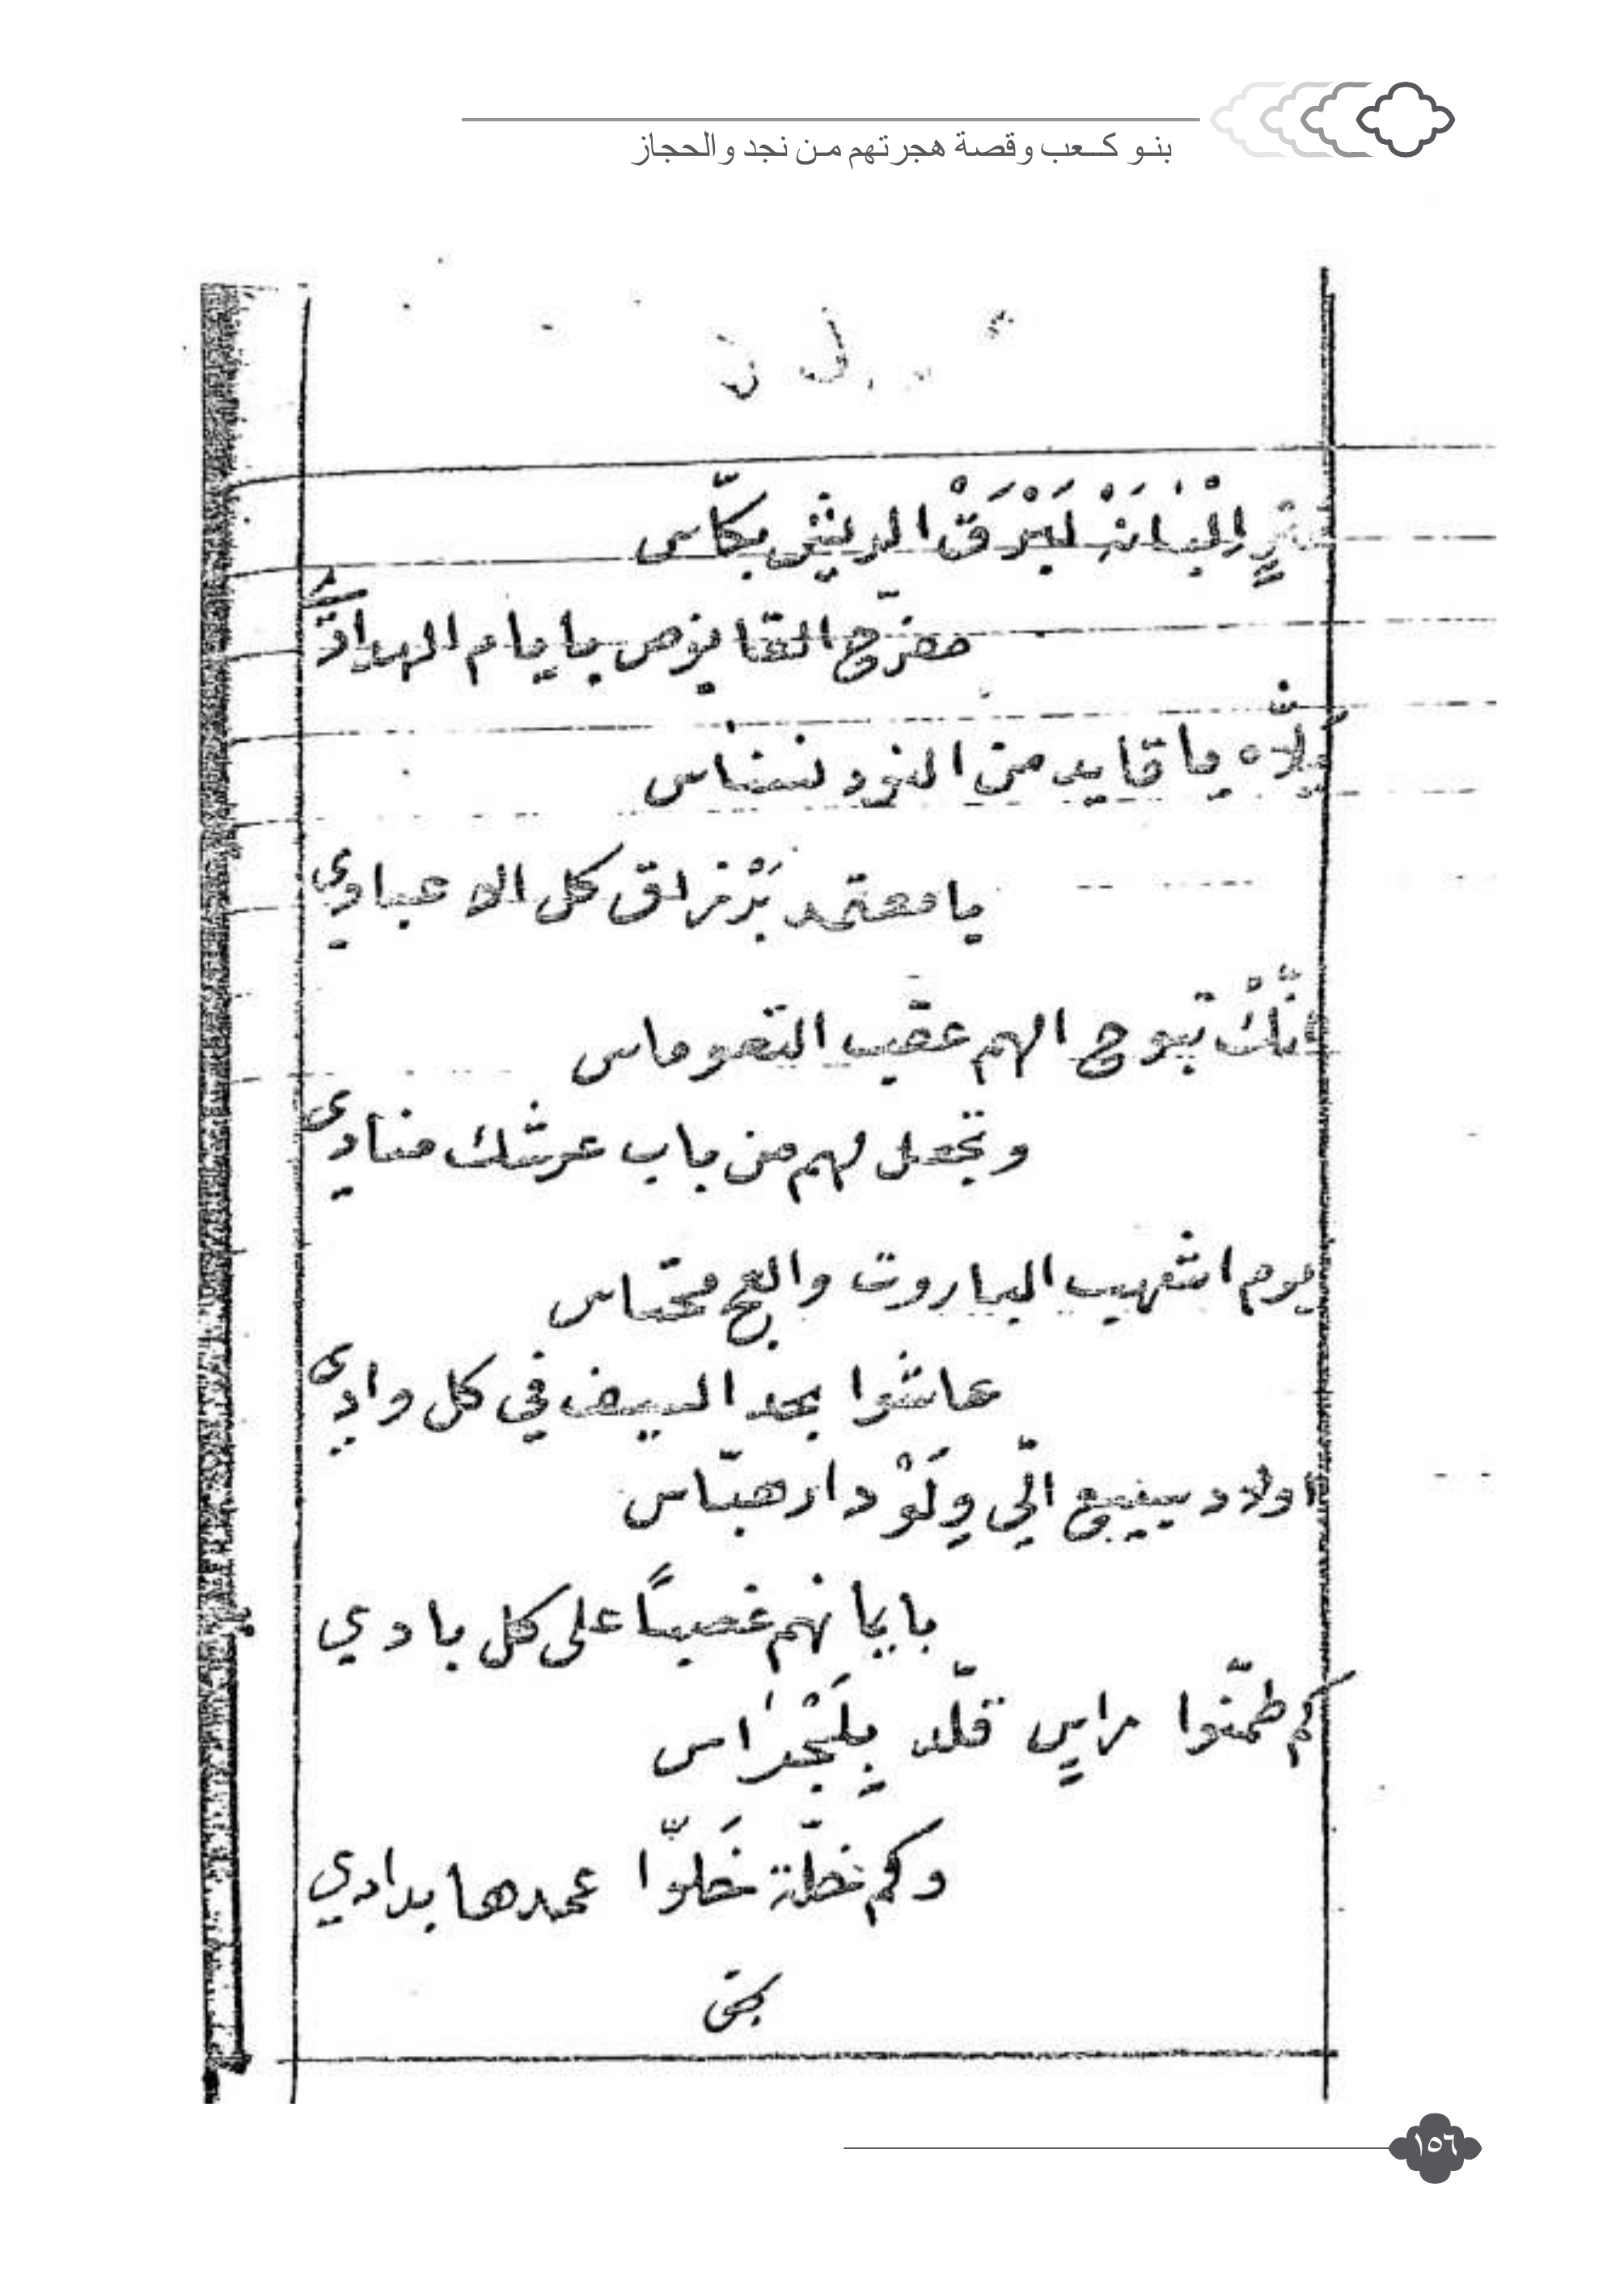 بنو كعب وقصة هجرتهم من نجد والحجاز
الريش بكّاس
مفرّج القانوص بايام الهداد
يلّاه يا قايد من النود نسناس
يا معتمد بَرْزاق كل الاعبادي
انّكْ تبوج الهم عقب التعوماس
وتجعل لهم من باب عرشك منادي
يوم اشهيب الباروت والعج محتاس
عاشوا بحد السيف في كل وادي
اولاد سبيع الّي ولَوْ دار هبّاس
بايمانهم غصباً على كل بادي
كم طمّنوا راس
وكم خلّوا عمدها بدادي
١٥٦